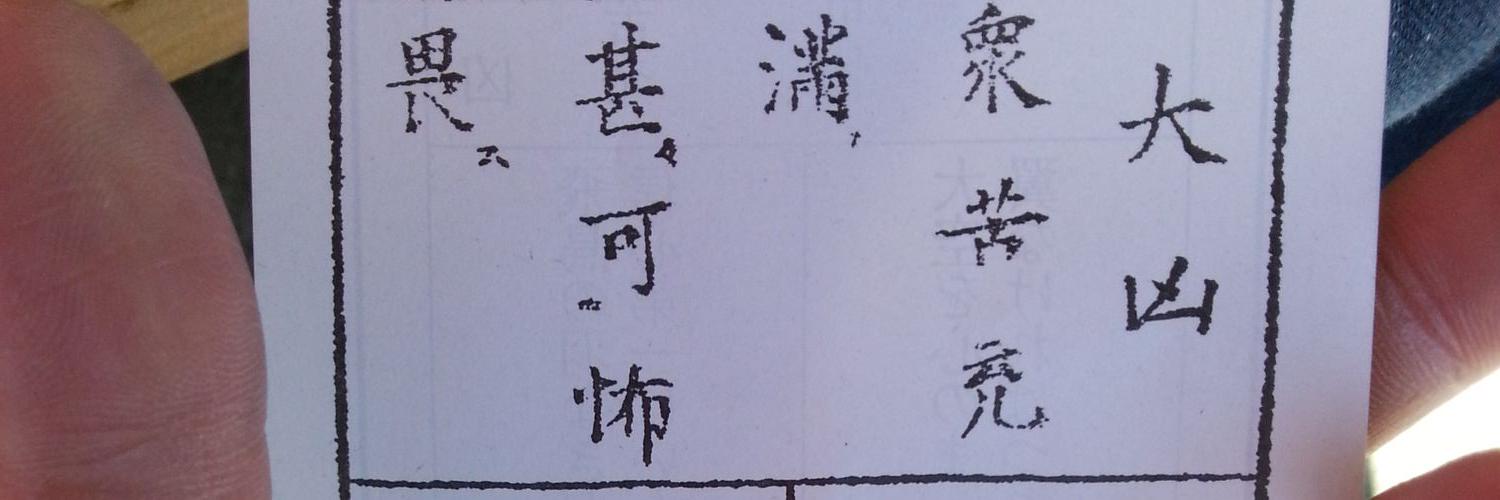 大凶
衆苦充
満
甚可怖
畏